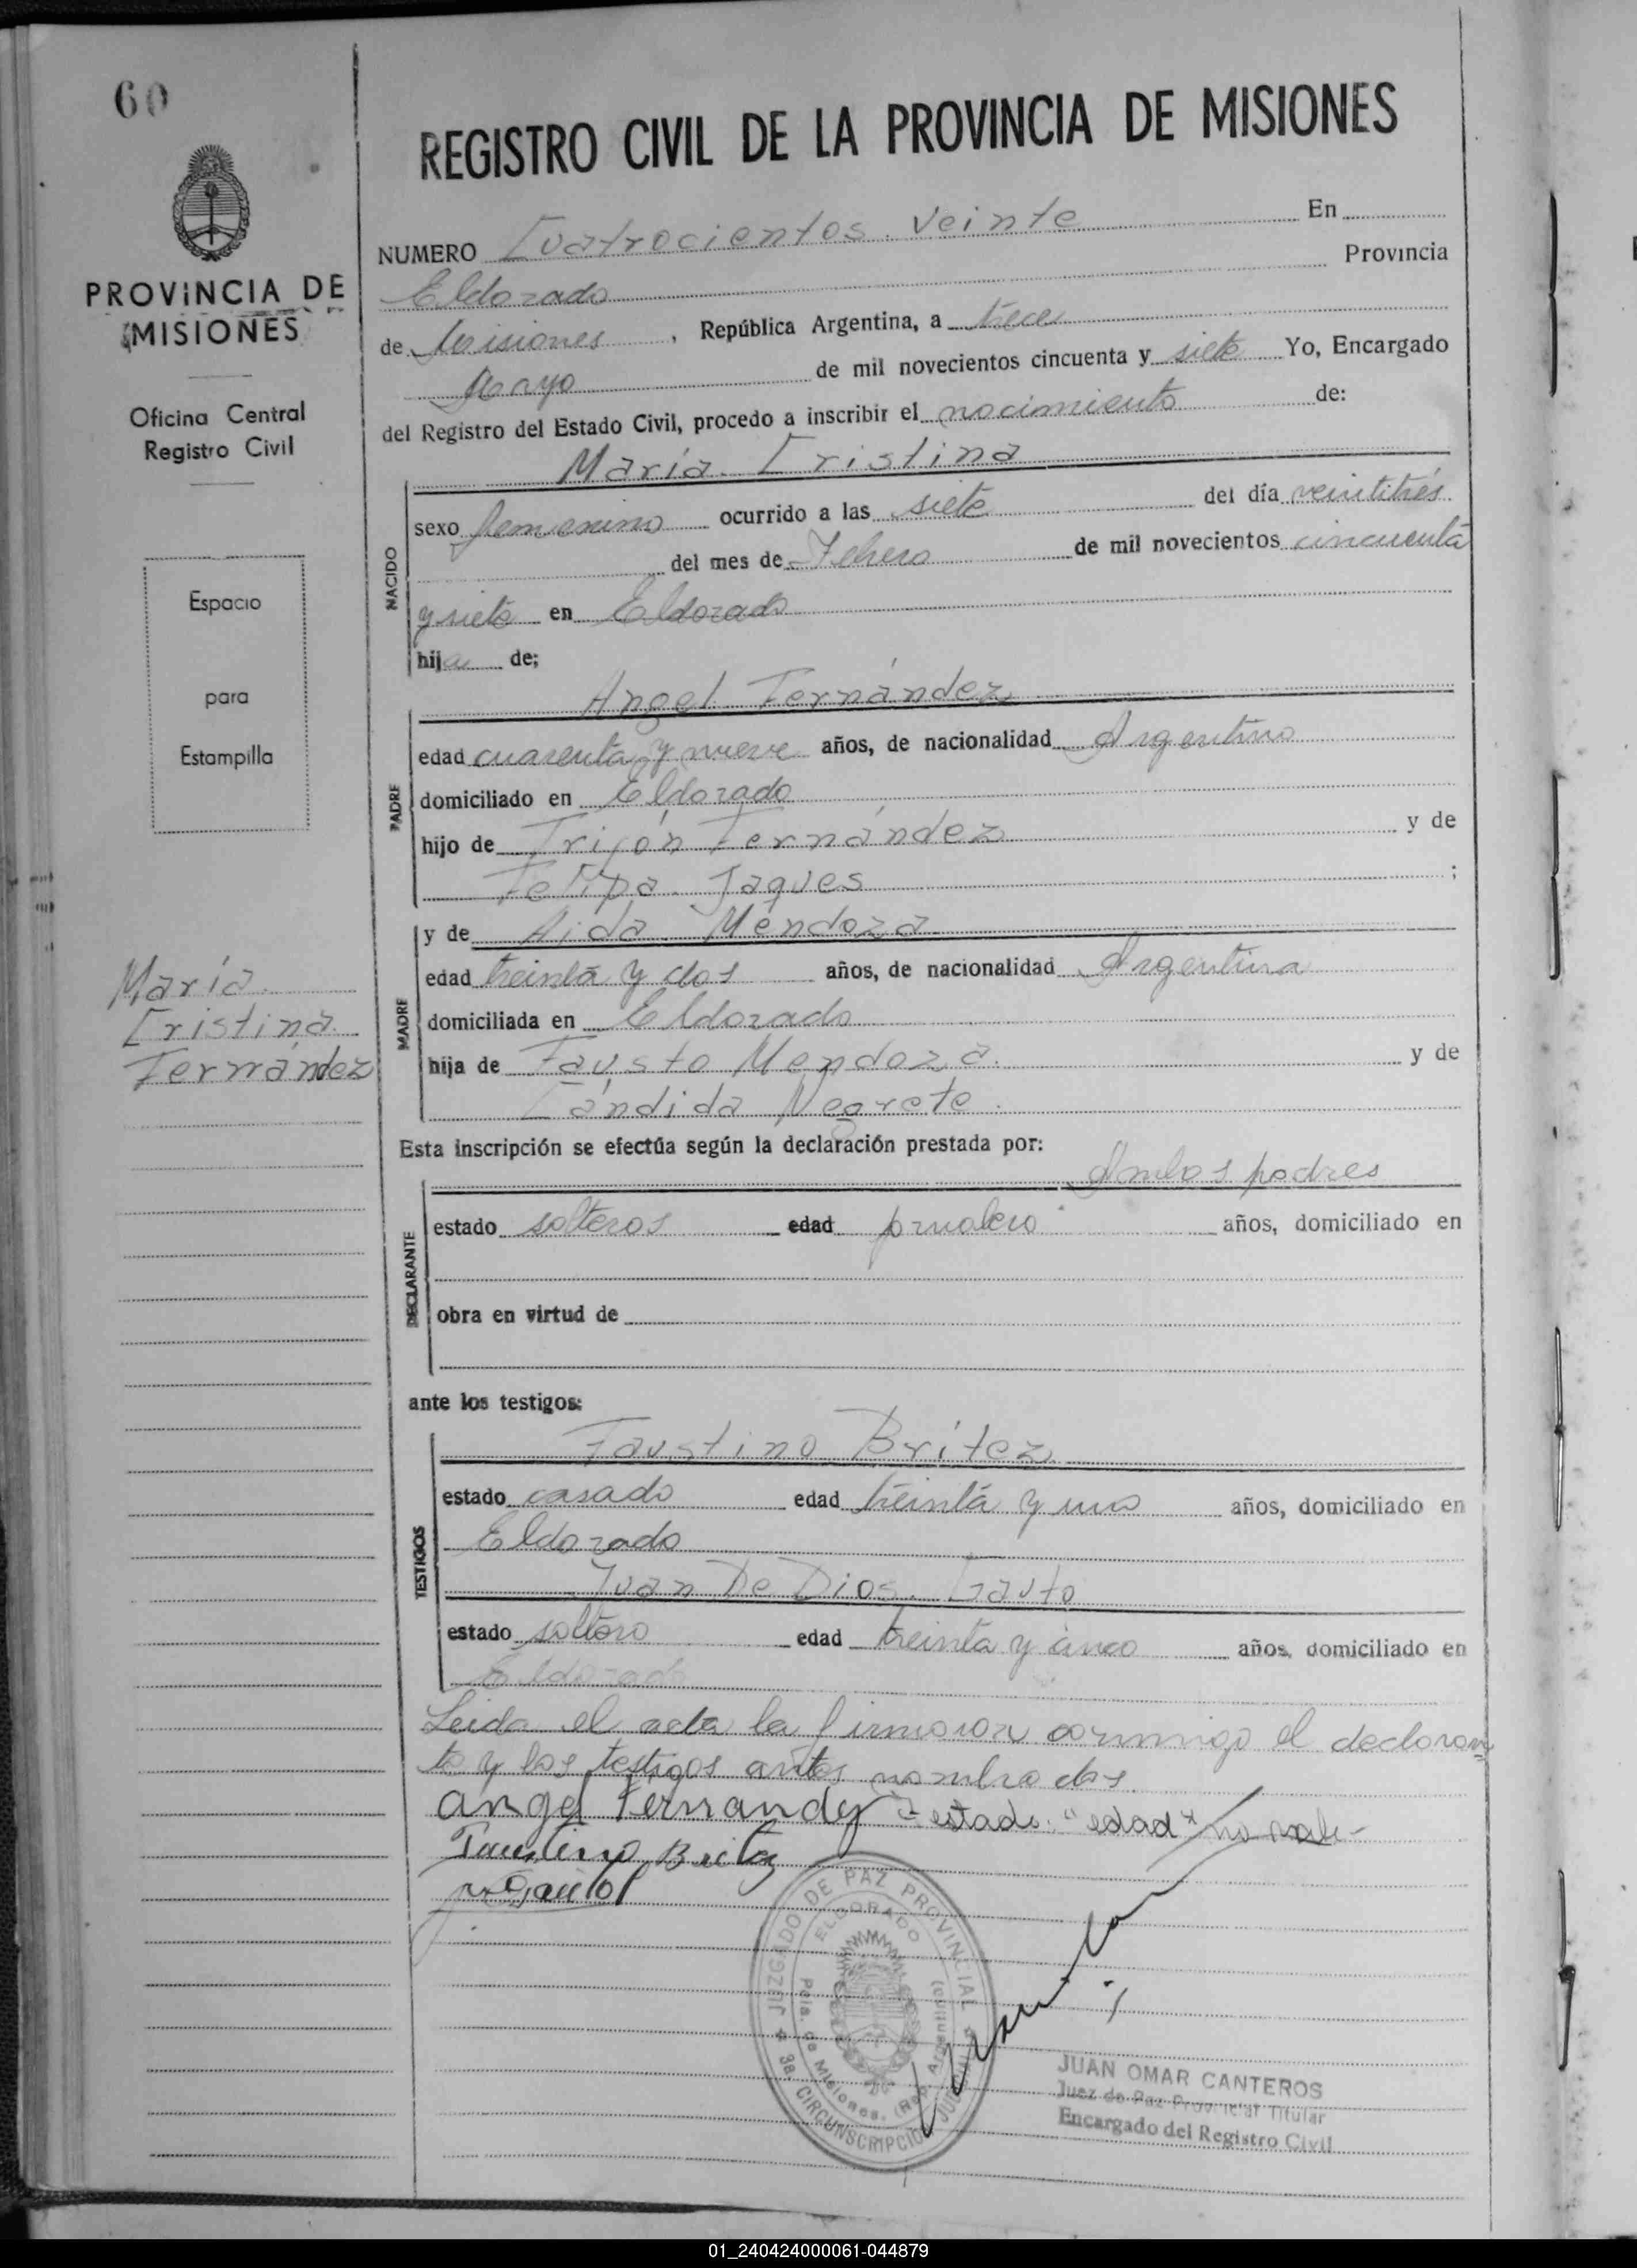 60
PROVINCIA DE
MISIONES
Oficina Central
Registro Civil
Espacio
para
Estampilla
María
Cristina
Fernández
REGISTRO CIVIL DE LA PROVINCIA DE MISIONES
NUMERO Cuatrocientos veinte En
Eldorado Provincia
de Misiones, República Argentina, a trece
Mayo de mil novecientos cincuenta y siete Yo, Encargado
del Registro del Estado Civil, procedo a inscribir el nacimiento de:
María Cristina
NACIDO
sexo femenino ocurrido a las siete del día veintitrés
del mes de Febrero de mil novecientos cincuenta
y siete en Eldorado
hija de;
Angel Fernández
PADRE
edad cuarenta y nueve años, de nacionalidad Argentino
domiciliado en Eldorado
hijo de Trifón Fernández y de
Felipa Jaques ;
MADRE
y de Aida Mendoza
edad treinta y dos años, de nacionalidad Argentina
domiciliada en Eldorado
hija de Fausto Mendoza. y de
Cándida Negrete.
Esta inscripción se efectúa según la declaración prestada por:
Ambos padres
DECLARANTE
estado solteros edad jornalero años, domiciliado en
obra en virtud de
ante los testigos:
Faustino Britez
TESTIGOS
estado casado edad treinta y uno años, domiciliado en
Eldorado
Juan De Dios Gauto
estado soltero edad treinta y cinco años, domiciliado en
Eldorado
Leida el acta la firmaron conmigo el declaran
te y los testigos antes nombrados.
Angel Fernandez estado: "edad" no vale-
Faustino Britez
JUZGADO DE PAZ PROVINCIAL
ELDORADO
Pcia. de Misiones. (Rep. Argentina)
3a. CIRCUNSCRIPCION JUDICIAL
JUAN OMAR CANTEROS
Juez de Paz Provincial Titular
Encargado del Registro Civil
01_240424000061-044879